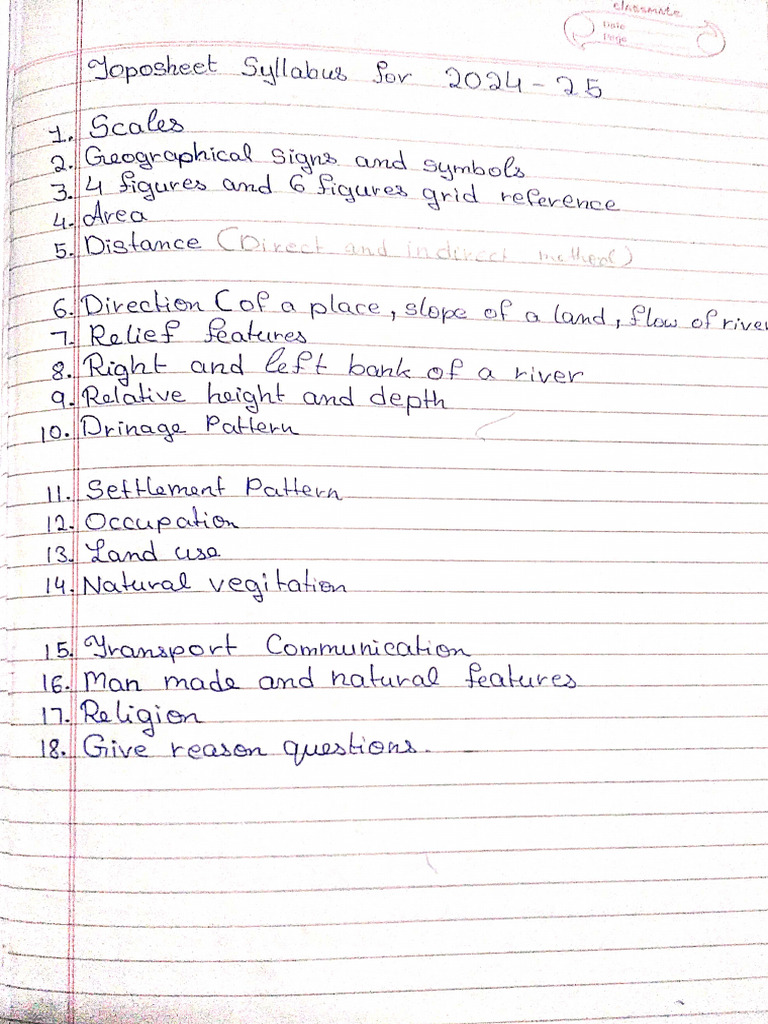 classmate
Date
Page
Toposheet Syllabus for 2024-25
1. Scales
2. Geographical Signs and symbols
3. 4 figures and 6 figures grid reference
4. Area
5. Distance (Direct and indirect method)
6. Direction (of a place, slope of a land, flow of river
7. Relief features
8. Right and left bank of a river
9. Relative height and depth
10. Drinage Pattern
11. Settlement Pattern
12. Occupation
13. Land use
14. Natural vegitation
15. Transport Communication
16. Man made and natural features
17. Religion
18. Give reason questions.